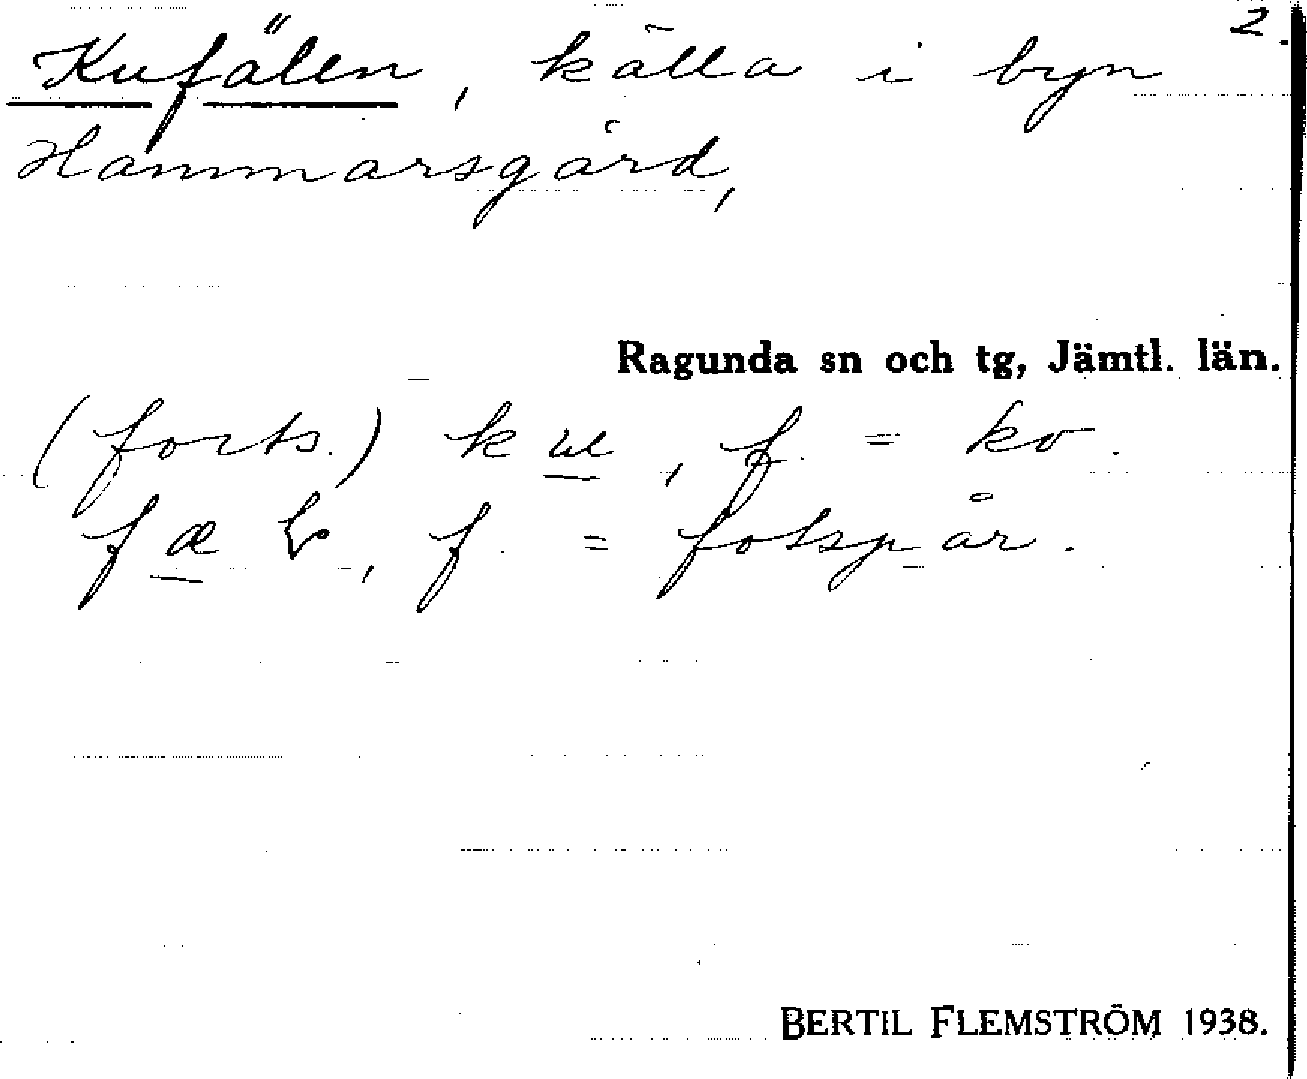 2.
Kufälen, källa i byn
Hammarsgård,
Ragunda sn och tg, Jämtl. län.
(forts.) k , f. = ko.
f = fotspår.
BERTIL FLEMSTRÖM 1938.